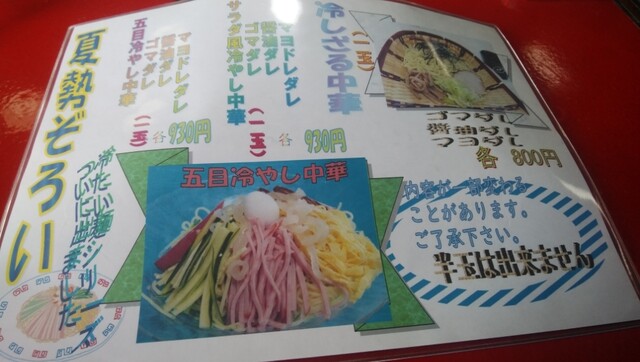 冷しざる中華
(一玉)
ゴマダレ
醤油ダレ
マヨダレ
各 800円
サラダ風冷やし中華
(一玉)
ゴマダレ
醤油ダレ
マヨドレダレ
各 930円
五目冷やし中華
(一玉)
ゴマダレ
醤油ダレ
マヨドレダレ
各 930円
夏勢ぞろい
冷たい麺シリーズ
ついに出ました
五目冷やし中華
内容が一部変わる
ことがあります。
ご了承下さい。
半玉は出来ません